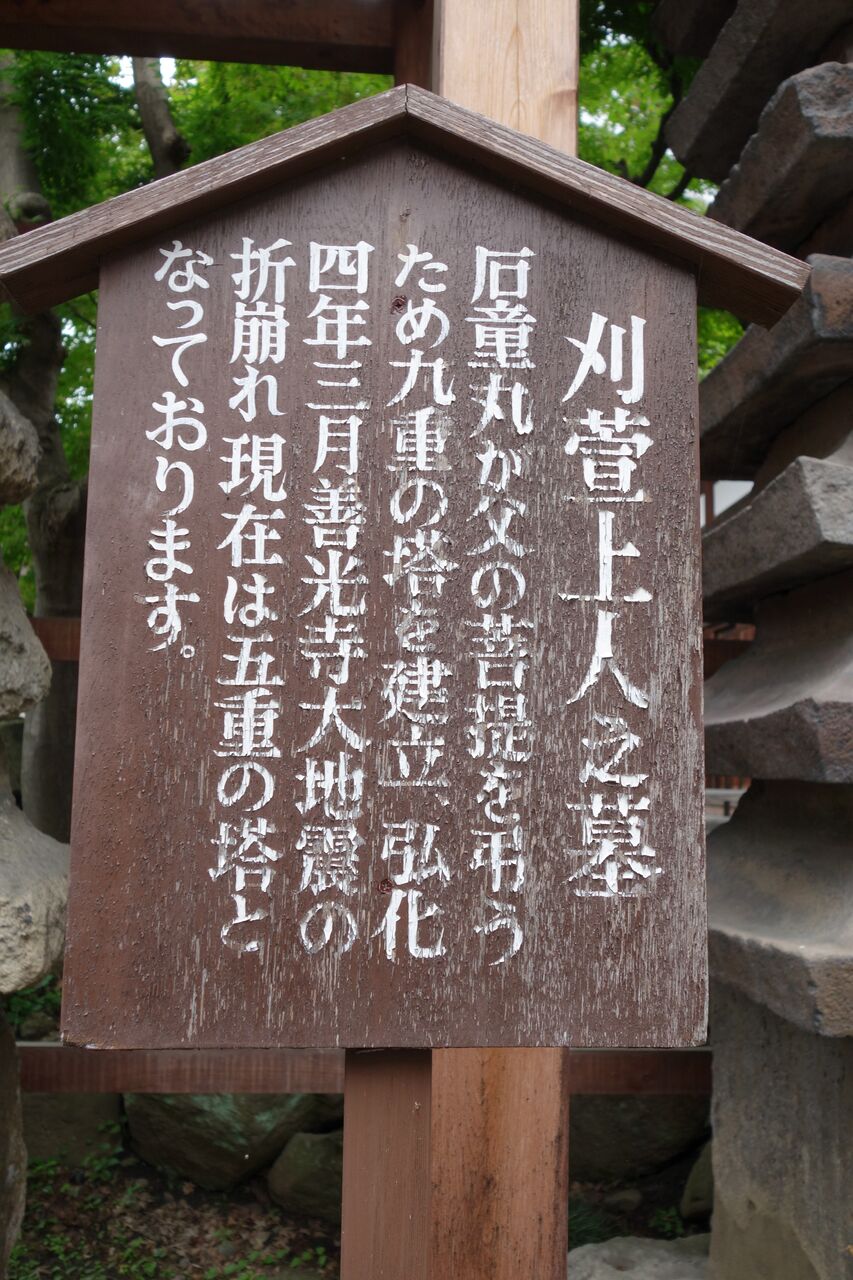 刈萱上人之墓
石童丸が父の菩提を弔う
ため九重の塔を建立、弘化
四年三月善光寺大地震の
折崩れ現在は五重の塔と
なっております。